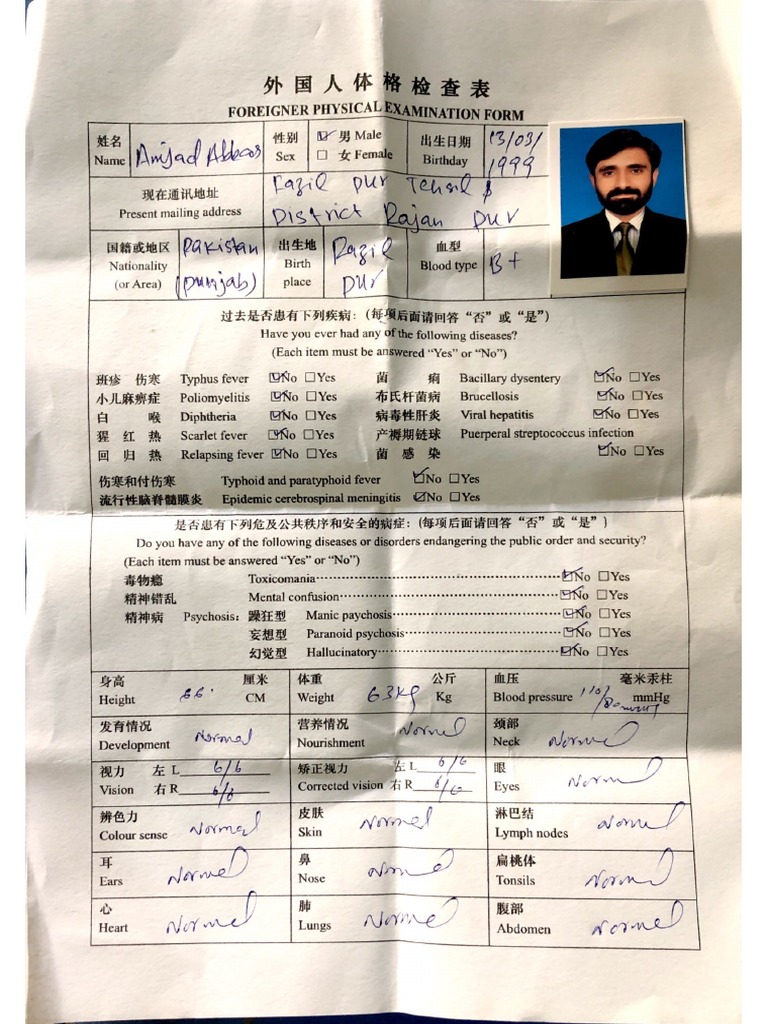 外国人体格检查表
FOREIGNER PHYSICAL EXAMINATION FORM
姓名 Name Amjad Abbas 性别 Sex ☑ 男 Male □ 女 Female 出生日期 Birthday 13/03/1999
现在通讯地址 Present mailing address Fazil pur Tehsil & District Rajan pur
国籍或地区 Nationality (or Area) Pakistan (punjab) 出生地 Birth place Fazil pur 血型 Blood type B+
过去是否患有下列疾病：(每项后面请回答“否”或“是”)
Have you ever had any of the following diseases?
(Each item must be answered “Yes” or “No”)
班疹 伤寒 Typhus fever ☑No □Yes 菌 痢 Bacillary dysentery ☑No □Yes
小儿麻痹症 Poliomyelitis ☑No □Yes 布氏杆菌病 Brucellosis ☑No □Yes
白 喉 Diphtheria ☑No □Yes 病毒性肝炎 Viral hepatitis ☑No □Yes
猩 红 热 Scarlet fever ☑No □Yes 产褥期链球 Puerperal streptococcus infection
回 归 热 Relapsing fever ☑No □Yes 菌 感 染 ☑No □Yes
伤寒和付伤寒 Typhoid and paratyphoid fever ☑No □Yes
流行性脑脊髓膜炎 Epidemic cerebrospinal meningitis ☑No □Yes
是否患有下列危及公共秩序和安全的病症：(每项后面请回答“否”或“是”)
Do you have any of the following diseases or disorders endangering the public order and security?
(Each item must be answered “Yes” or “No”)
毒物瘾 Toxicomania ☑No □Yes
精神错乱 Mental confusion ☑No □Yes
精神病 Psychosis: 躁狂型 Manic paychosis ☑No □Yes
妄想型 Paranoid psychosis ☑No □Yes
幻觉型 Hallucinatory ☑No □Yes
身高 厘米 体重 公斤 血压 毫米汞柱
Height 66 CM Weight 63Kg Kg Blood pressure 110/80mmHg mmHg
发育情况 Development Normal 营养情况 Nourishment Normal 颈部 Neck Normal
视力 左 L 6/6 矫正视力 左 L 6/6 眼
Vision 右 R 6/6 Corrected vision 右 R 6/6 Eyes Normal
辨色力 Colour sense Normal 皮肤 Skin Normal 淋巴结 Lymph nodes Normal
耳 Ears Normal 鼻 Nose Normal 扁桃体 Tonsils Normal
心 Heart Normal 肺 Lungs Normal 腹部 Abdomen Normal